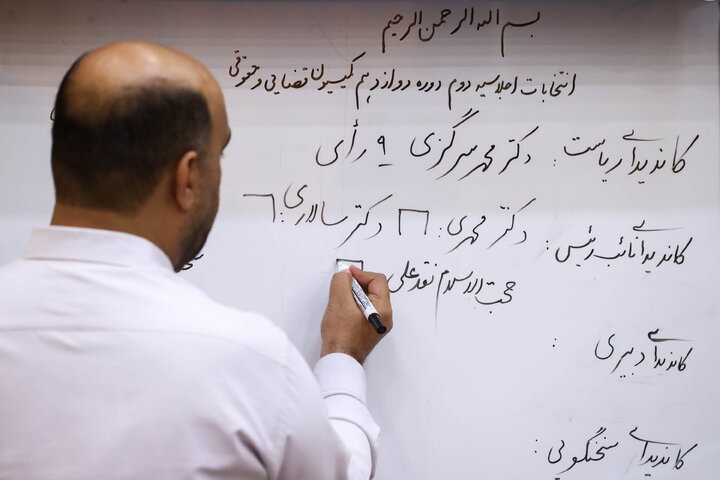 بسم الله الرحمن الرحیم
انتخابات اجلاسیه دوم دوره دوازدهم کمیسیون قضایی و حقوقی
کاندیدای ریاست: دکتر مهر سرگزی ۹ رأی
کاندیدای نائب رئیس: دکتر مهری: دکتر سالاری:
حجت الاسلام نقدعلی
کاندیدای دبیری :
کاندیدای سخنگویی :